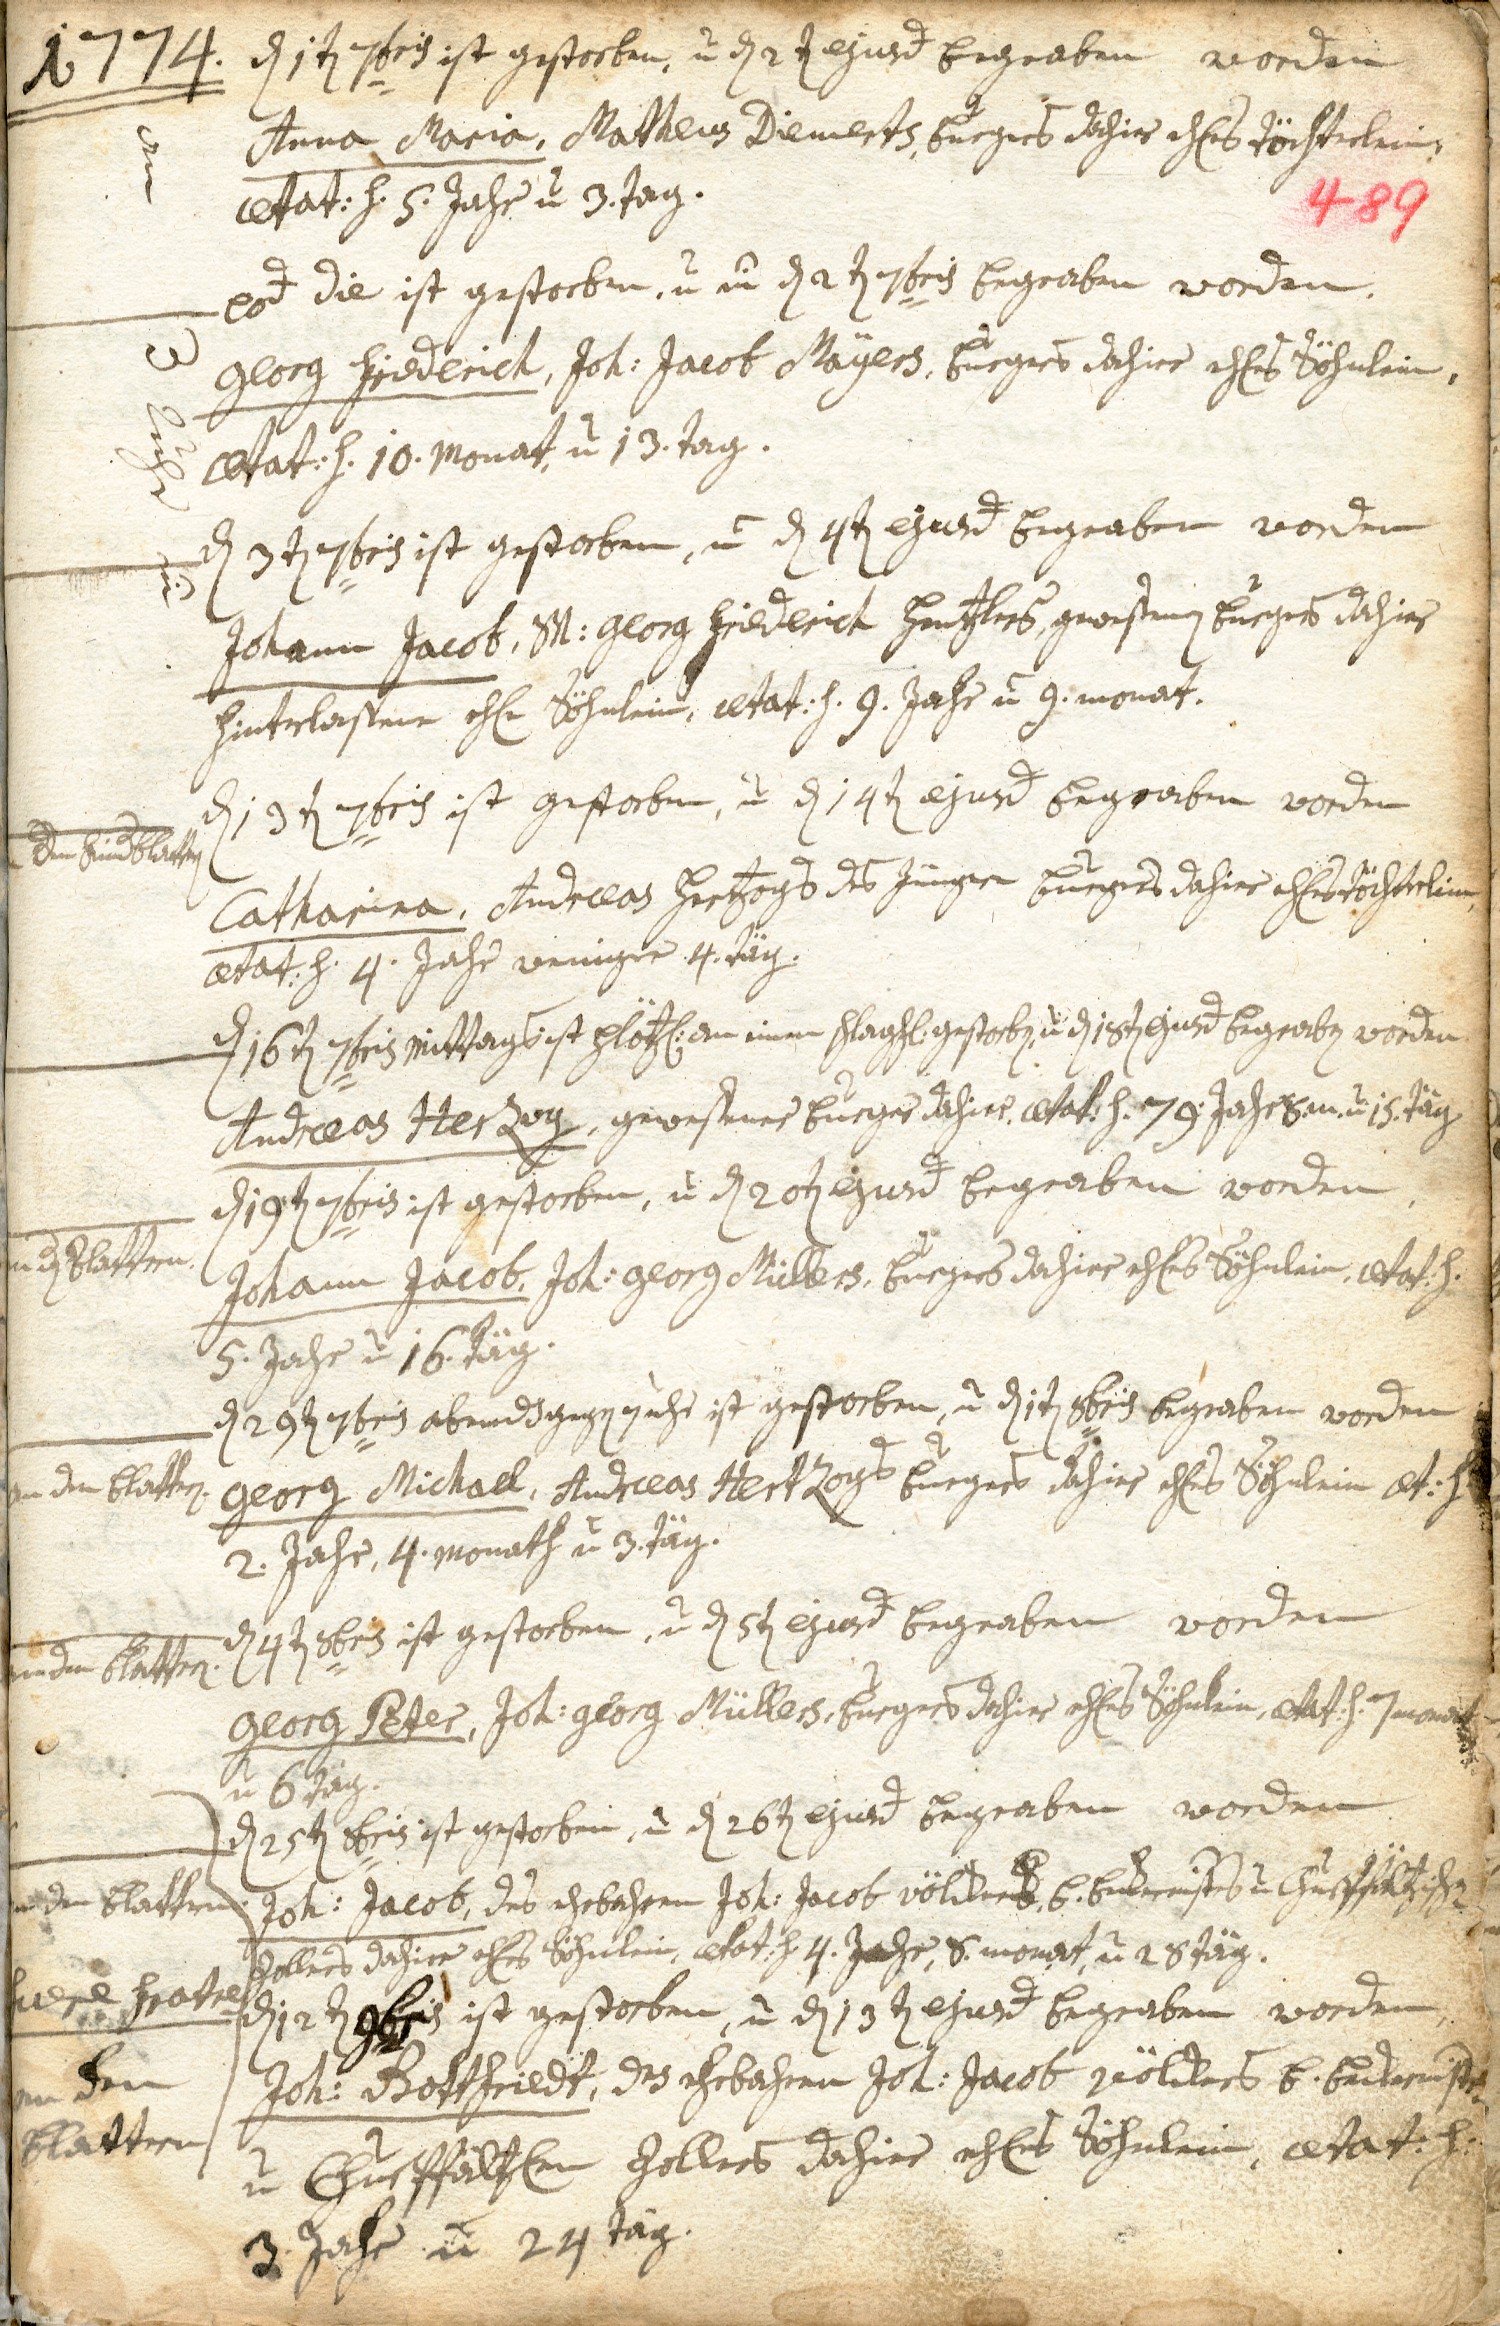 1774. d 1t 7bris ist gestorben, u d 2t ejusd begraben worden
Anna Maria, Mattheus Diemerts, burgers dahier ehes töchterlein,
ætat: h. 5. Jahr u 3. tag.
489
eod die ist gestorben, u d 2t 7bris begraben worden.
Georg Friederich, Joh: Jacob Mayers, burgers dahier ehes Söhnlein,
ætat: h. 10. Monat, u 13. tag.
d 3t 7bris ist gestorben, u d 4t ejusd begraben worden
Johann Jacob, M: Georg Friederich, gewesenen burgers dahier
hinterlassene ehl Söhnlein, ætat: h. 9. Jahr u 9. monat.
d 13t 7bris ist gestorben, u d 14t ejusd begraben worden
den Kindblattern
Catharina, Andreas Hertzogs des Jüngern burgers dahier ehes töchterlein,
ætat: h. 4. Jahr weniger 4. täg.
d 16t 7bris Mittags ist plötzl: an einem schlagfl: gestorben, u d 18t ejusd begraben worden
Andreas Herzog, gewesener burger dahier, ætat: h. 79. Jahr 8. m. u 15. täg
d 19t 7bris ist gestorben, u d 20t ejusd begraben worden,
n d Blattern.
Johann Jacob, Joh: Georg Müllers, burgers dahier ehes Söhnlein, ætat: h.
5. Jahr u 16. täg.
d 29t 7bris abends gegen 7 uhr ist gestorben, u d 1t 8bris begraben worden
an den blattern. Georg Michael, Andreas Hertzogs burgers dahier ehes Söhnlein æt: h
2. Jahr, 4. Monath u 3. täg.
d 4t 8bris ist gestorben, u d 5t ejusd begraben worden
an den blattern.
Georg Peter, Joh: Georg Müllers, burgers dahier ehes Söhnlein, ætat: h. 7 monat
u 6 täg.
d 25t 8bris ist gestorben, u d 26t ejusd begraben worden
an den blattern. Joh: Jacob, des ehrbahren Joh: Jacob Völckers, b. u Churpfältzischen
Zollers dahier ehes Söhnlein, ætat: h. 4. Jahr, 8. monat, u 28 täg.
fratres d 12t 9bris ist gestorben, u d 13t ejusd begraben worden,
an den Joh: Gottfriedt, des ehrbahren Joh: Jacob Völckers b.
blattern u Churpfältzen Zollers dahier ehes Söhnlein, ætat: h:
3. Jahr u 24 täg.